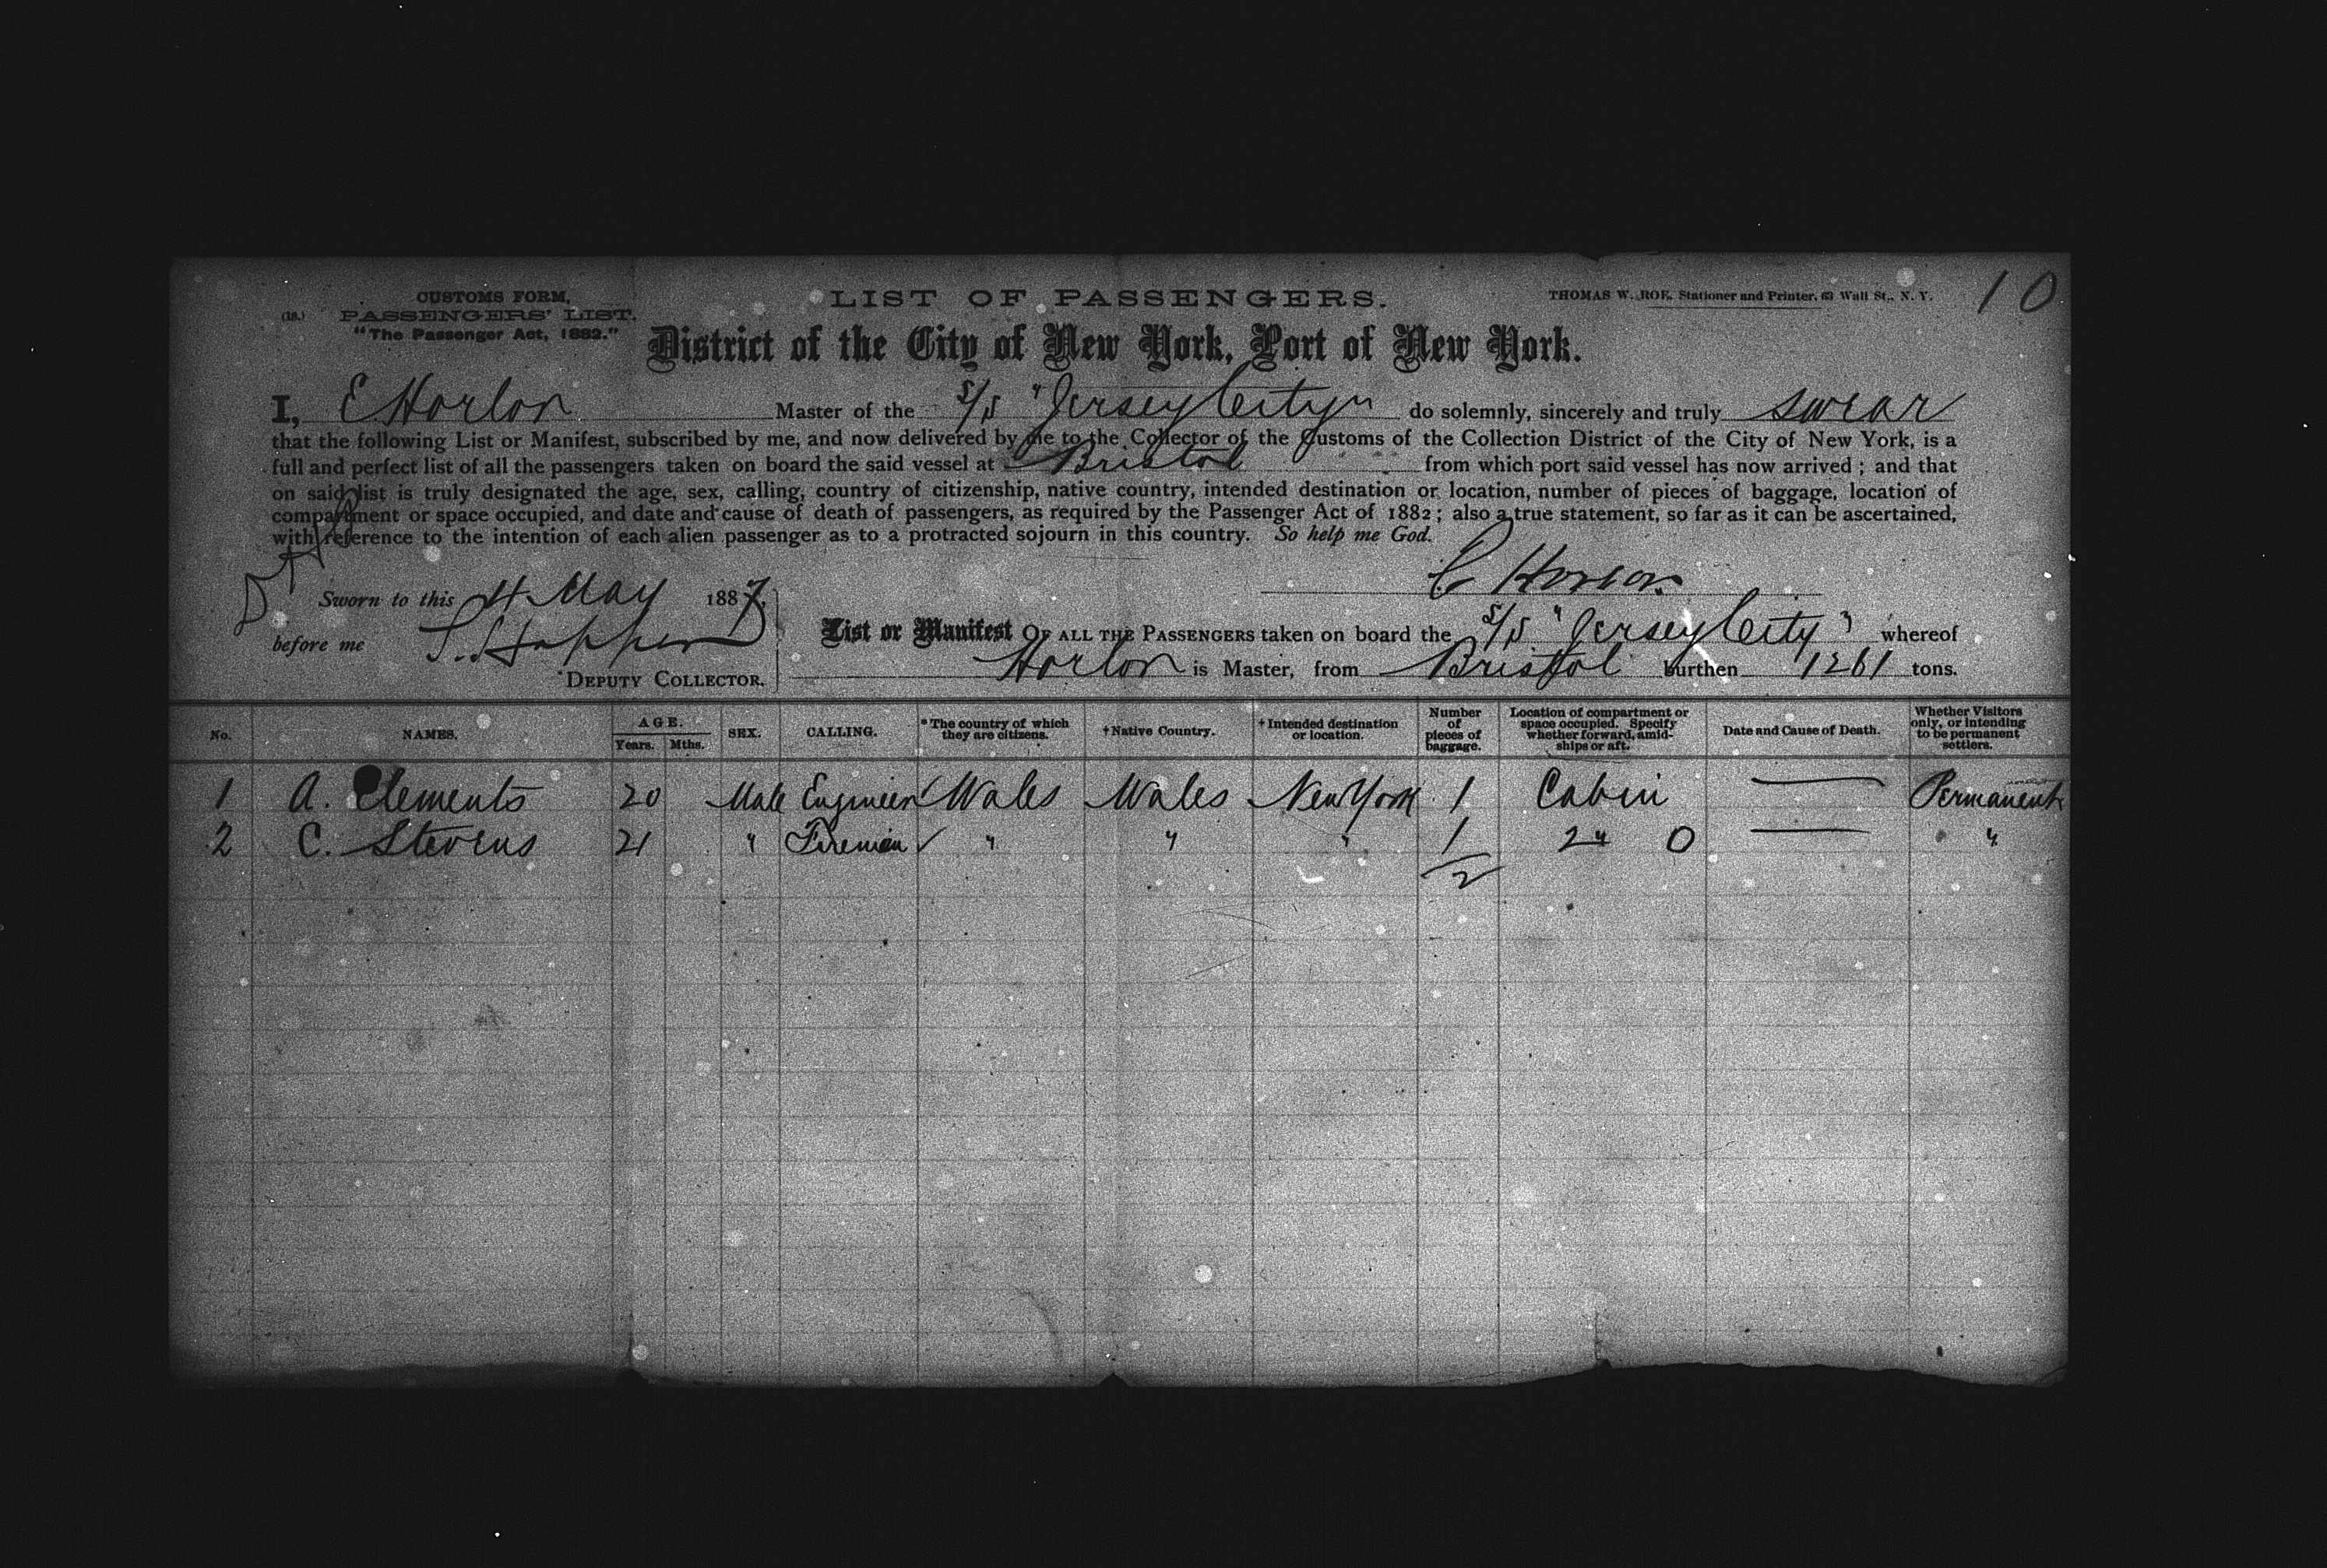 CUSTOMS FORM,
(18.) PASSENGERS' LIST.
"The Passenger Act, 1882."
LIST OF PASSENGERS.
THOMAS W. ROE, Stationer and Printer, 63 Wall St., N. Y.
10
District of the City of New York, Port of New York.
I, E Horlor Master of the S/S "Jersey City" do solemnly, sincerely and truly swear
that the following List or Manifest, subscribed by me, and now delivered by me to the Collector of the Customs of the Collection District of the City of New York, is a
full and perfect list of all the passengers taken on board the said vessel at Bristol from which port said vessel has now arrived ; and that
on said list is truly designated the age, sex, calling, country of citizenship, native country, intended destination or location, number of pieces of baggage, location of
compartment or space occupied, and date and cause of death of passengers, as required by the Passenger Act of 1882 ; also a true statement, so far as it can be ascertained,
with reference to the intention of each alien passenger as to a protracted sojourn in this country. So help me God.
E Horlor
Sworn to this 4 May 1887.
before me
DEPUTY COLLECTOR.
List or Manifest OF ALL THE PASSENGERS taken on board the S/S "Jersey City" whereof
Horlor is Master, from Bristol burthen 1261 tons.
No. NAMES. AGE. Years. Mths. SEX. CALLING. *The country of which they are citizens. †Native Country. †Intended destination or location. Number of pieces of baggage. Location of compartment or space occupied. Specify whether forward, amid-ships or aft. Date and Cause of Death. Whether Visitors only, or intending to be permanent settlers.
1 A. Clements 20 Male Engineer Wales Wales New York 1 Cabin — Permanent
2 C. Stevens 21 " Fireman " " " 1 2" 0 — "
2